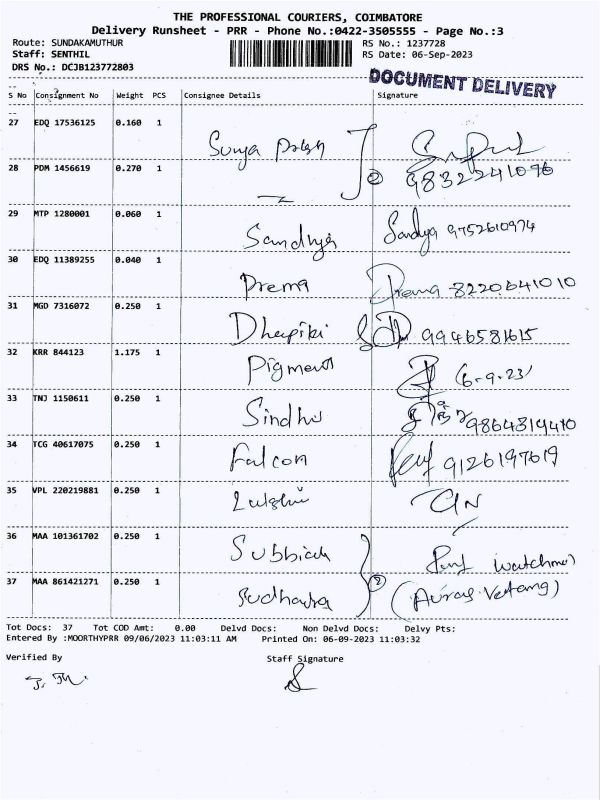 THE PROFESSIONAL COURIERS, COIMBATORE
Delivery Runsheet - PRR - Phone No.:0422-3505555 - Page No.:3
Route: SUNDAKAMUTHUR RS No.: 1237728
Staff: SENTHIL RS Date: 06-Sep-2023
DRS No.: DCJB123772803
DOCUMENT DELIVERY
S No Consignment No Weight PCS Consignee Details Signature
27 EDQ 17536125 0.160 1
28 PDM 1456619 0.270 1 2 9832241096
29 MTP 1280001 0.060 1 Sandhya Sandya 9752610974
30 EDQ 11389255 0.040 1 Prema Prema 8220641010
31 MGD 7316072 0.250 1 9946581615
32 KRR 844123 1.175 1 Pigment 6-9-23
33 TNJ 1150611 0.250 1 Sindhu 9864319410
34 TCG 40617075 0.250 1 Falcon 9126197619
35 VPL 220219881 0.250 1
36 MAA 101361702 0.250 1 Subbiah watchmen
37 MAA 861421271 0.250 1 Sudhadra 2
Tot Docs: 37 Tot COD Amt: 0.00 Delvd Docs: Non Delvd Docs: Delvy Pts:
Entered By :MOORTHYPRR 09/06/2023 11:03:11 AM Printed On: 06-09-2023 11:03:32
Verified By Staff Signature